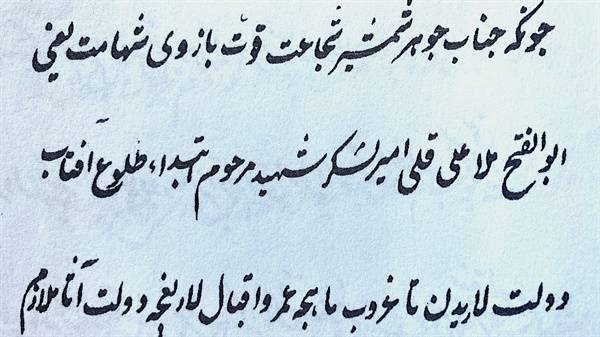 چونکه جناب جوهر شمشیر شجاعت قوت بازوی شهامت یعنی
ابوالفتح ملا علی قلی امیر لشکر شهید مرحوم ابتداء طلوع آفتاب
دولت لاریدن تا غروب ماهچه عمر و اقبال لاریغچه دولت آتا ملازم